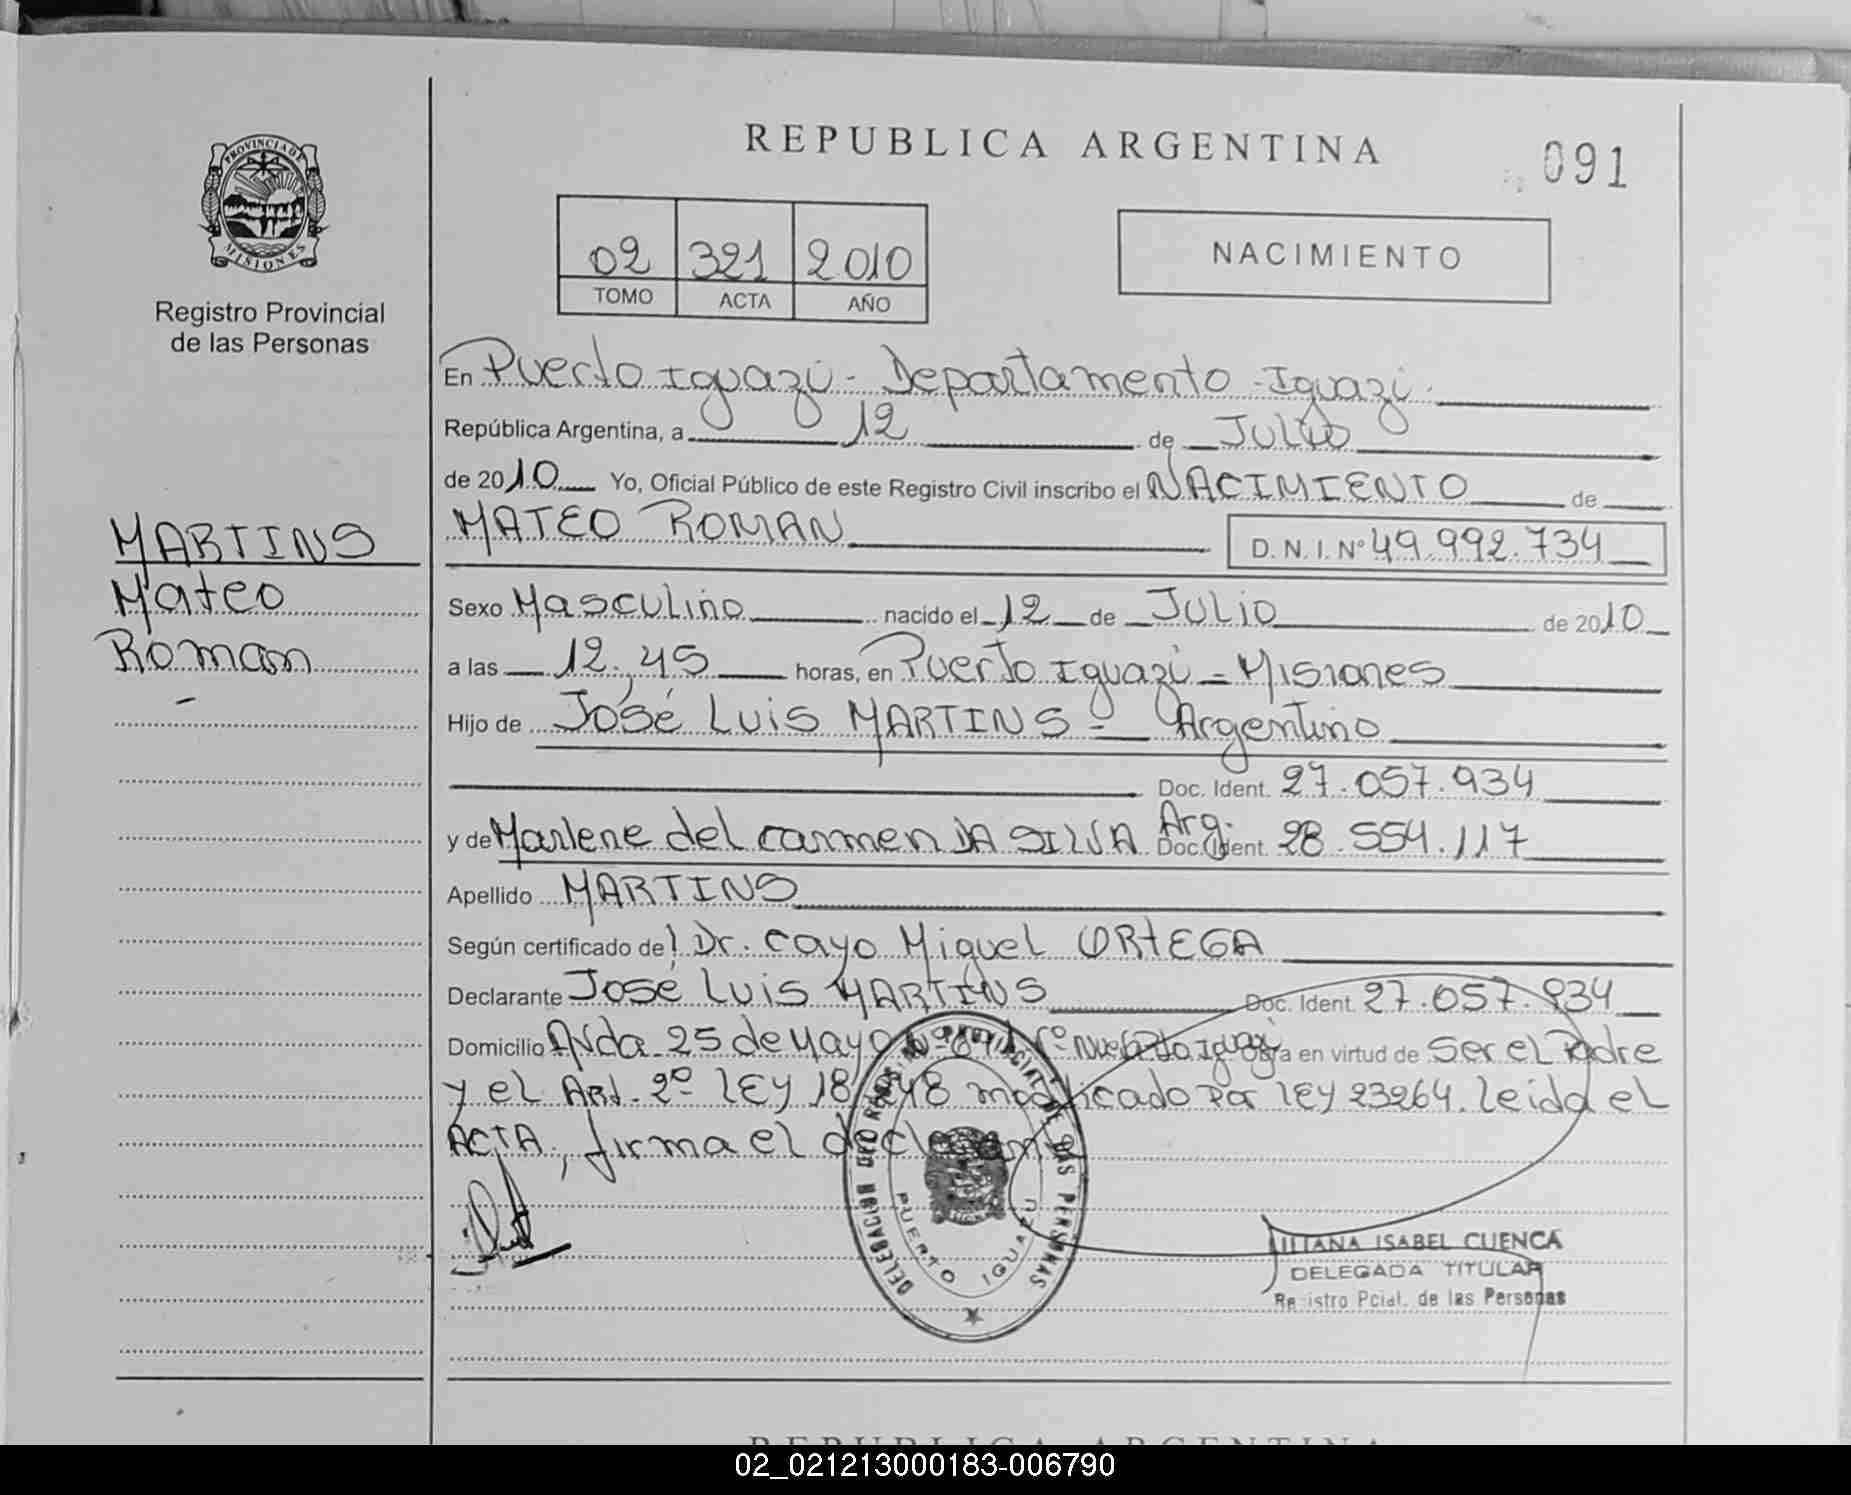 REPUBLICA ARGENTINA
091
PROVINCIA DE
MISIONES
Registro Provincial
de las Personas
02 321 2010
TOMO ACTA AÑO
NACIMIENTO
En Puerto Iguazú - Departamento - Iguazú.
República Argentina, a 12 de Julio
de 2010 Yo, Oficial Público de este Registro Civil inscribo el NACIMIENTO de
MARTINS
Mateo
Roman
MATEO ROMAN D.N.I.Nº 49.992.734
Sexo Masculino nacido el 12 de JULIO de 2010
a las 12,45 horas, en Puerto Iguazú = Misiones
Hijo de José Luis MARTINS = Argentino
Doc. Ident. 27.057.934
y de Marlene del carmen DA SILVA Arg. Doc. Ident. 28.554.117
Apellido MARTINS
Según certificado de Dr. Cayo Miguel ORTEGA
Declarante José Luis MARTINS Doc. Ident. 27.057.934
Domicilio Avda. 25 de Mayo Iguazú en virtud de Ser el Padre
y el Art. 2º LEY 18 248 modificado por LEY 23264. Leida el
ACTA, firma el declarante
DELEGACION PROVINCIAL DE LAS PERSONAS
PUERTO IGUAZU
LILIANA ISABEL CUENCA
DELEGADA TITULAR
Registro Pcial. de las Personas
REPUBLICA ARGENTINA
02_021213000183-006790